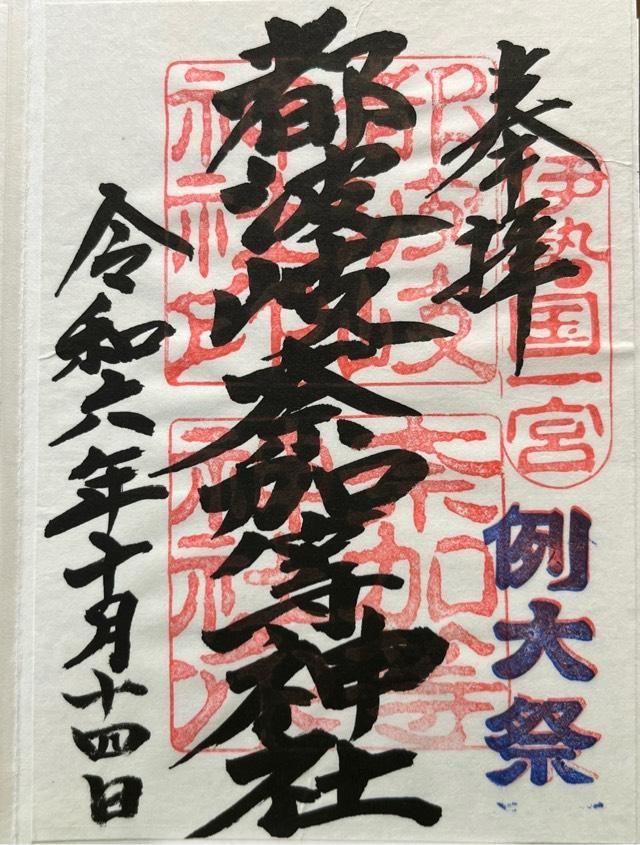 奉拝
伊勢国一宮
例大祭
都波岐奈加等神社
都波岐
神社印
奈加等
神社
令和六年十月十四日